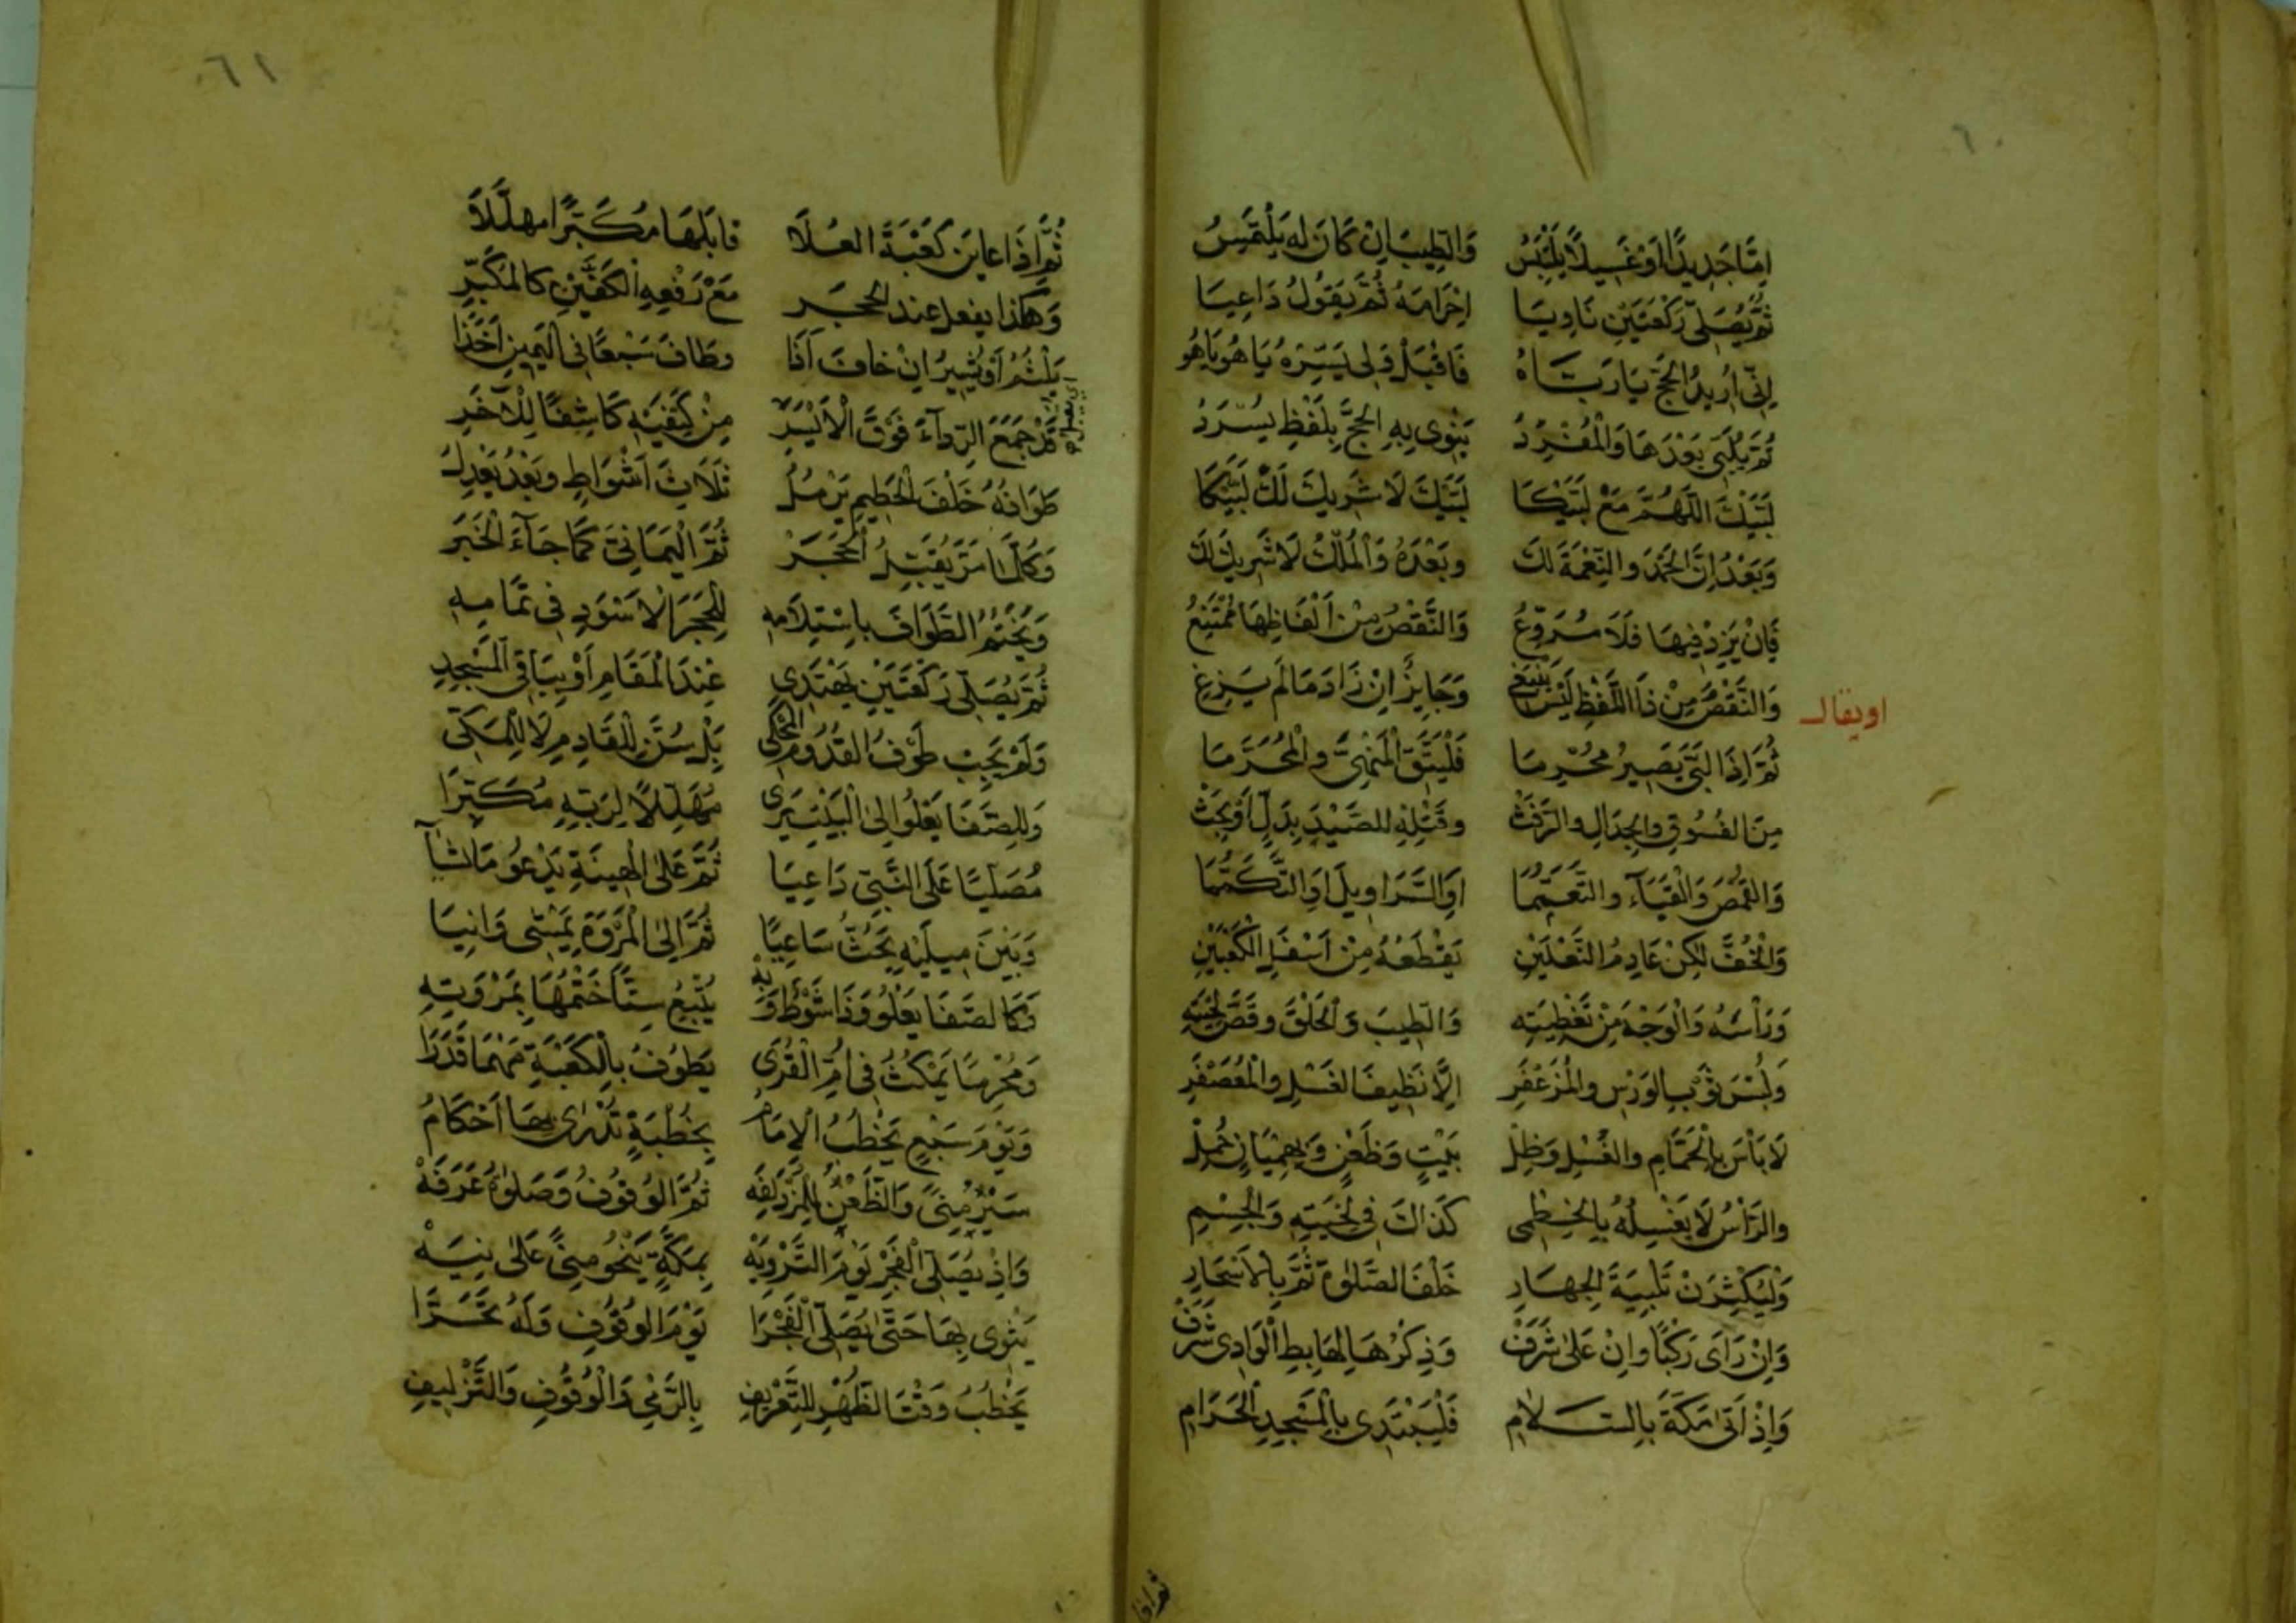 ٦٠
إِمَّا جَدِيدًا أَوْ غَسِيلًا يَلْبَسُ وَالطِّيبَ إِنْ كَانَ لَهُ يَلْتَمِسُ
ثُمَّ يُصَلِّي رَكْعَتَيْنِ نَاوِيَا إِحْرَامَهُ ثُمَّ يَقُولُ دَاعِيَا
إِنِّي أُرِيدُ الْحَجَّ يَا رَبَّاهُ فَاقْبَلْ وَلِي يَسِّرْهُ يَا هُوَ يَا هُو
ثُمَّ يُلَبِّي بَعْدَهَا وَالْمُفْرِدُ يَنْوِي بِهِ الْحَجَّ بِلَفْظٍ يُسْرَدُ
لَبَّيْكَ اللَّهُمَّ مَعْ لَبَّيْكَا لَبَّيْكَ لَا شَرِيكَ لَكْ لَبَّيْكَا
وَبَعْدُ إِنَّ الْحَمْدَ وَالنِّعْمَةَ لَكَ وَبَعْدَهُ وَالْمُلْكُ لَا شَرِيكَ لَكَ
فَإِنْ يَزِدْ فِيهَا فَلَا مُرَوِّعُ وَالنَّقْصُ مِنْ أَلْفَاظِهَا مُمْتَنِعُ
اويقال
وَالنَّقْصُ مِنْ ذَا اللَّفْظِ لَيْسَ يَنْبَغِي وَجَايِزٌ إِنْ زَادَ مَا لَمْ يَزِغِ
ثُمَّ إِذَا لَبَّى يَصِيرُ مُحْرِمَا فَلْيَتَّقِ الْمَنْهِيَّ وَالْمُحَرَّمَا
مِنَ الْفُسُوقِ وَالْجِدَالِ وَالرَّفَثْ وَقَتْلِهِ لِلصَّيْدِ بِدَلٍّ أَوْ بَحَثْ
وَالْقُمُصَ وَالْقَبَاءَ وَالتَّعَمُّمَا أَوِ السَّرَاوِيلَ أَوِ التَّكَمُّمَا
وَالْخُفَّ لَكِنْ عَادِمُ النَّعْلَيْنِ يَقْطَعُهُ مِنْ أَسْفَلِ الْكَعْبَيْنِ
وَرَأْسَهُ وَالْوَجْهَ مِنْ تَغْطِيَتِهِ وَالطِّيبَ وَالْحَلْقَ وَقَصَّ لِحْيَتِهِ
وَلُبْسَ ثَوْبٍ بِالْوَرْسِ وَالْمُزَعْفَرِ إِلَّا نَظِيفَ الْغَسْلِ وَالْمُعَصْفَرِ
لَا بَأْسَ بِالْحَمَّامِ وَالْغُسْلِ وَظِلْ بَيْتٍ وَظَعْنٍ وَبِهِمْيَانٍ حُمِلْ
وَالرَّأْسُ لَا يَغْسِلُهُ بِالْخِطْمِي كَذَاكَ فِي لِحْيَتِهِ وَالْجِسْمِ
وَلْيُكْثِرَنْ تَلْبِيَةَ الْجِهَارِ خَلْفَ الصَّلٰوةِ ثُمَّ بِالْأَسْحَارِ
وَإِنْ رَأَى رَكْبًا وَإِنْ عَلَى شَرَفْ وَذِكْرُهَا لِهَابِطِ الْوَادِي شَرَفْ
وَإِذْ أَتَى مَكَّةَ بِالسَّلَامِ فَلْيَبْتَدِي بِالْمَسْجِدِ الْحَرَامِ
٦١
ثُمَّ إِذَا عَايَنَ كَعْبَةَ الْعُلَا قَابَلَهَا مُكَبِّرًا مُهَلِّلَا
وَهَكَذَا يَفْعَلُ عِنْدَ الْحَجَرِ مَعْ رَفْعِهِ الْكَفَّيْنِ كَالْمُكَبِّرِ
يَلْثُمُ أَوْ يُشِيرُ إِنْ خَافَ أَذَا وَطَافَ سَبْعًا فِي الْيَمِينِ أَخَذَا
قَدْ جَمَعَ الرِّدَاءَ فَوْقَ الْأَيْسَرِ مِنْ كَتِفَيْهِ كَاشِفًا لِلْآخَرِ
طَوَافُهُ خَلْفَ الْحَطِيمِ يَرْمُلُ ثَلَاثَ أَشْوَاطٍ وَبَعْدُ يَعْدِلُ
وَكُلَّمَا مَرَّ يُقَبِّلُ الْحَجَرْ ثُمَّ الْيَمَانِيَ كَمَا جَآءَ الْخَبَرْ
وَيَخْتِمُ الطَّوَافَ بِاسْتِلَامِهِ لِلْحَجَرِ الْأَسْوَدِ فِي تَمَامِهِ
ثُمَّ يُصَلِّي رَكْعَتَيْنِ يَهْتَدِي عِنْدَ الْمَقَامِ أَوْ بِبَاقِي الْمَسْجِدِ
وَلَمْ يَجِبْ طَوْفُ الْقُدُومِ الْمَحْكِي بَلْ سُنَّ لِلْقَادِمِ لَا لِلْمَكِّي
وَلِلصَّفَا يَعْلُو إِلَى الْبَيْتِ يَرَى مُهَلِّلًا لِرَبِّهِ مُكَبِّرَا
مُصَلِّيًا عَلَى النَّبِيِّ دَاعِيَا ثُمَّ عَلَى الْهِينَةِ يَدْعُو مَا شَآ
وَبَيْنَ مِيلَيْهِ يَحُثُّ سَاعِيًا ثُمَّ إِلَى الْمَرْوَةِ يَمْشِي وَانِيَا
وَكَالصَّفَا يَعْلُو وَذَا شَوْطٌ وَبِهْ يُتْبِعُ سِتًّا خَتْمُهَا بِمَرْوَتِهِ
وَمُحْرِمًا يَمْكُثُ فِي أُمِّ الْقُرَى يَطُوفُ بِالْكَعْبَةِ مَهْمَا قَدَرَا
وَيَوْمَ سَبْعٍ يَخْطُبُ الْإِمَامُ بِخُطْبَةٍ تُدْرَى بِهَا أَحْكَامُ
سَيْرُ مِنًى وَالظَّعْنُ لِلْمُزْدَلِفَهْ ثُمَّ الْوُقُوفُ وَصَلٰوةُ عَرَفَهْ
وَإِذْ يُصَلِّي الْفَجْرَ يَوْمَ التَّرْوِيَهْ بِمَكَّةٍ يَنْحُو مِنًى عَلَى نِيَهْ
يَثْوِي بِهَا حَتَّى يُصَلِّي الْفَجْرَا يَوْمَ الْوُقُوفِ وَلَهُ تَحَرَّا
يَخْطُبُ وَقْتَ الظُّهْرِ لِلتَّعْرِيفِ بِالرَّمْيِ وَالْوُقُوفِ وَالتَّزْلِيفِ